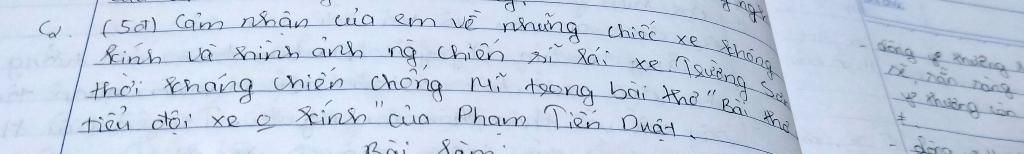 C2. (5đ) Cảm nhận của em về những chiếc xe không
kính và hình ảnh ng chiến sĩ lái xe Trường Sơn
thời kháng chiến chống Mĩ trong bài thơ "Bài thơ
tiểu đội xe o kính" của Phạm Tiến Duật.
Bài làm: